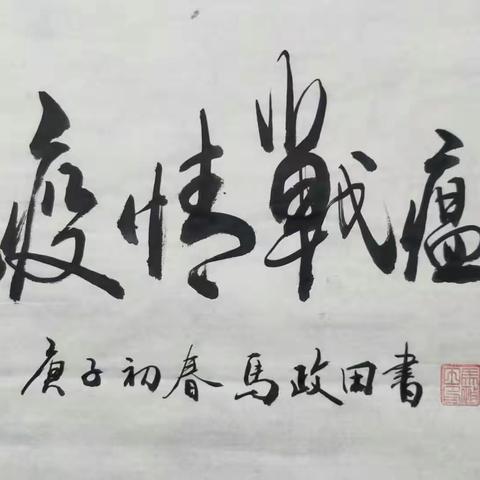 疫情戰瘟
庚子初春馬政田書